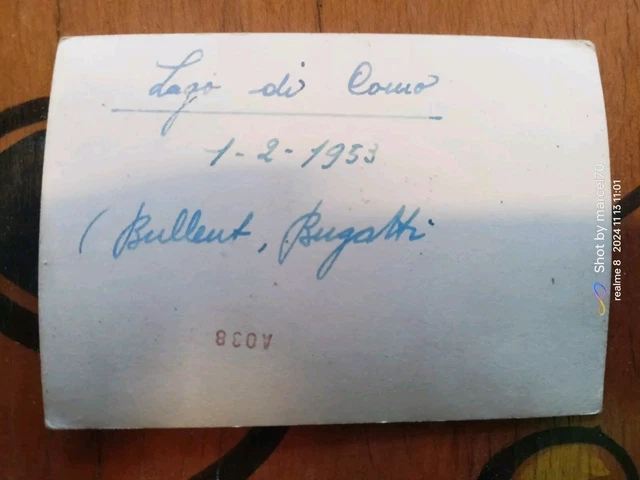 Lago di Como
1-2-1953
( Bullent, Bugatti
A038
Shot by marcel70
realme 8 2024 11 13 11:01